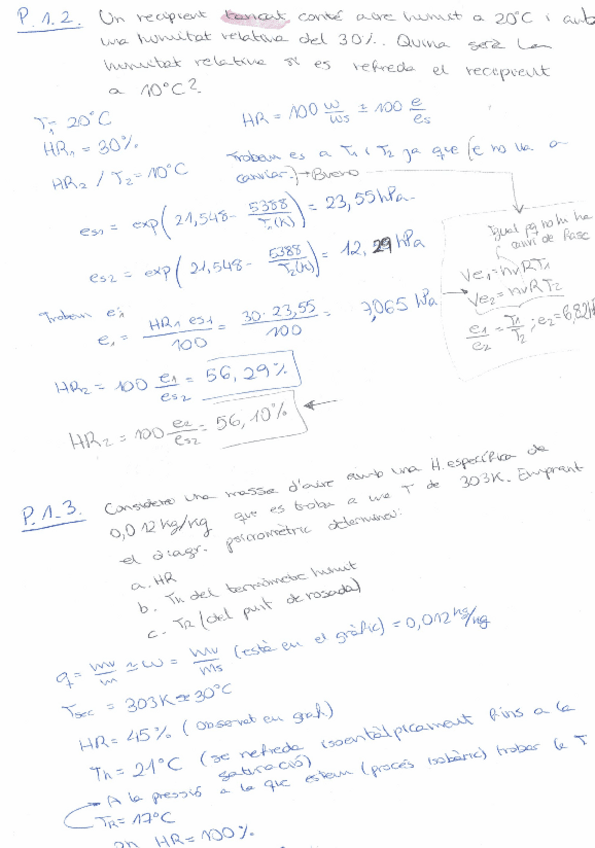 P.1.2. Un recipient tancat conté aire humit a 20°C i amb
una humitat relativa del 30%. Quina serà la
humitat relativa si es refreda el recipient
a 10°C?
T₁ = 20°C
HR₁ = 30%
HR₂ / T₂ = 10°C
HR = 100 w/ws ≅ 100 e/es
Trobem es a T₁ i T₂ ja que (e no va a
canviar.) → Bueno
es1 = exp(21,548 - 5388/T₁(K)) = 23,55 hPa
es2 = exp(21,548 - 5388/T₂(K)) = 12,29 hPa
Igual pq no hi ha
canvi de fase
Ve₁ = nvRT₁
Ve₂ = nvRT₂
e₁/e₂ = T₁/T₂ ; e₂ = 6,82 h
Trobem e₁
e₁ = HR₁ es1/100 = 30 · 23,55/100 = 7,065 hPa
HR₂ = 100 e₁/es2 = 56,29%
HR₂ = 100 e₂/es2 = 56,10%
P.1.3. Considere una massa d'aire amb una H. específica de
0,012 kg/kg que es troba a una T de 303K. Emprant
el diagr. psicromètric determineu:
a. HR
b. Th del termòmetre humit
c. TR (del punt de rosada)
q = mv/m ≃ w = mv/ms (està en el gràfic) = 0,012 kg/kg
Tsec = 303K ≈ 30°C
HR = 45% (observat en graf.)
Th = 21°C (se refreda isoentàlpicament fins a la
saturació)
A la pressió a la que estem (procés isobàric) trobar la T
TR = 17°C
HR = 100%